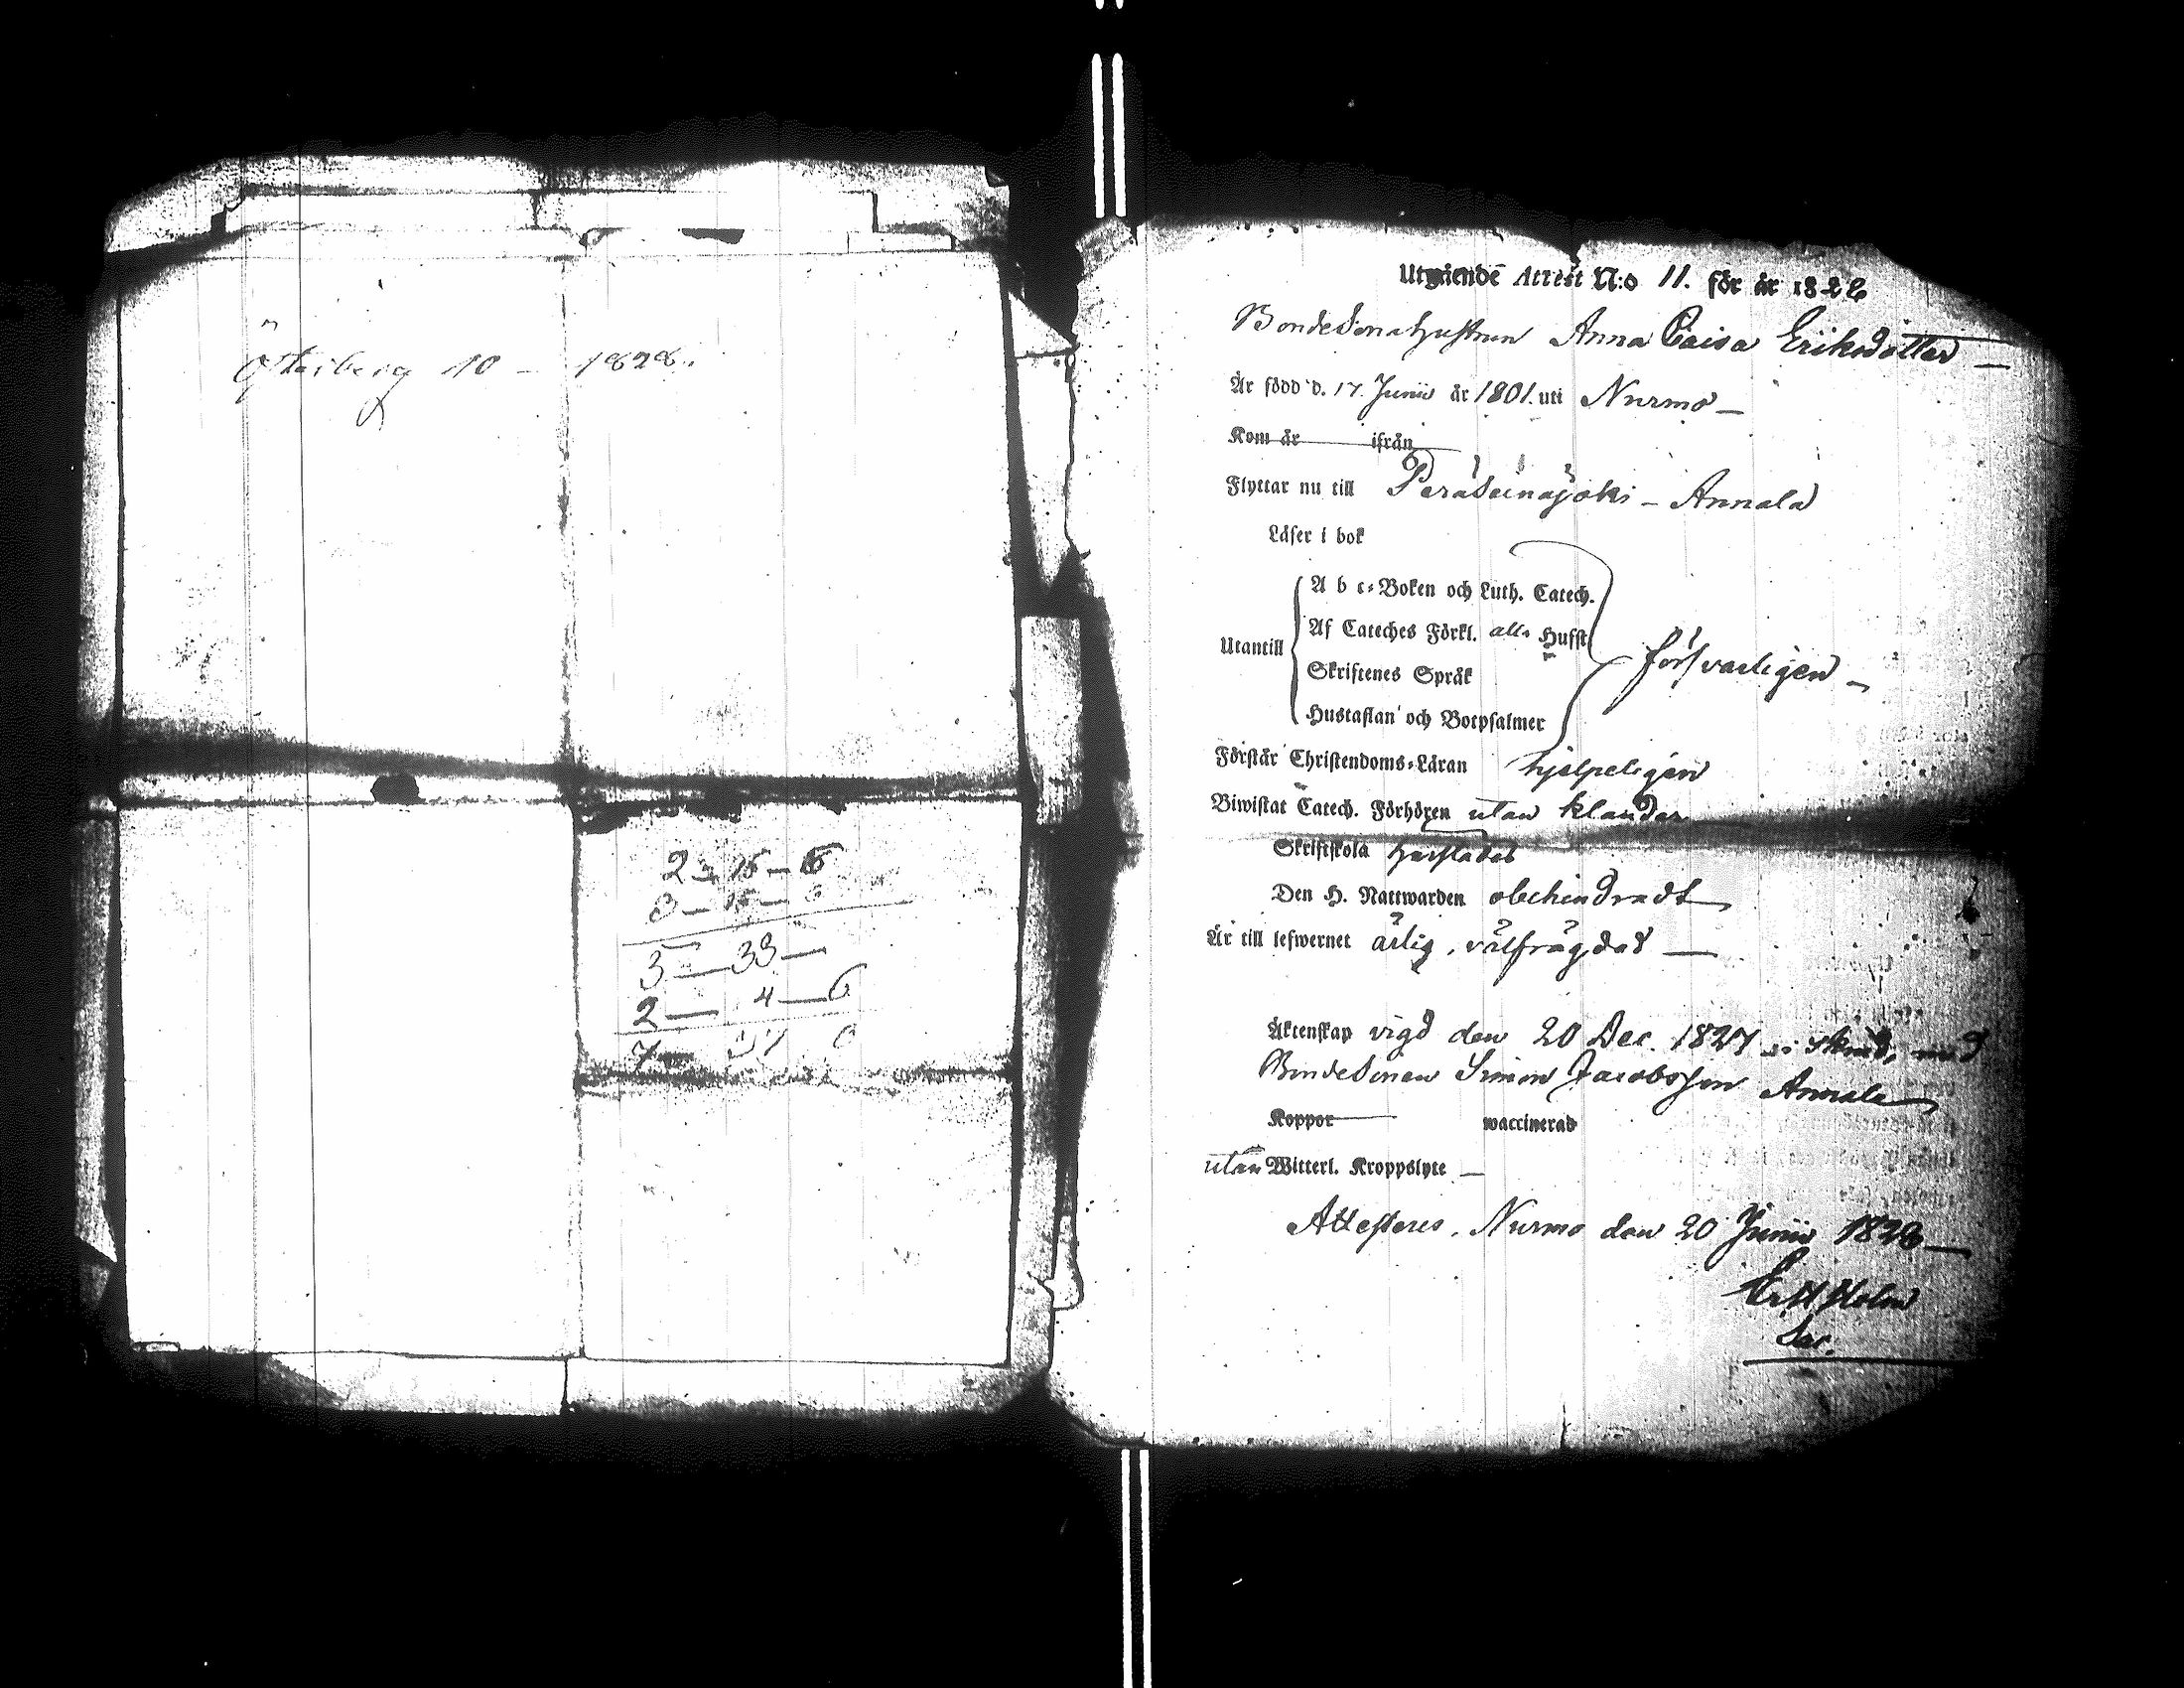 Österberg 10 - 1828.
2 - 15 - 6
3 - 33 -
2 - 4 - 6
Utgående Attest N:o 11. för år 1828
Bondesonahustrun Anna Caisa Eriksdotter —
Är född d. 17. Junii år 1801. uti Nurmo —
Kom år ifrån
Flyttar nu till Peräseinäjoki - Annala
Läser i bok
A b c-Boken och Luth. Catech.
Af Cateches Förkl. alla Husst
Utantill
Skriftenes Språk
försvarligen —
Hustaflan och Botpsalmer
Förstår Christendoms-Läran hjelpeligen
Biwistat Catech. Förhören utan klander
Skriftskola
Den H. Nattwarden obehindradt
Är till lefwernet ärlig, välfrägdad —
Äktenskap vigd den 20 Dec. 1827 med
Bondesonen Simon Jacobsson Annala
Koppor waccinerad
utan Witterl. Kroppslyte —
Attesteras, Nurmo den 20 Junii 1828 —
Sac.